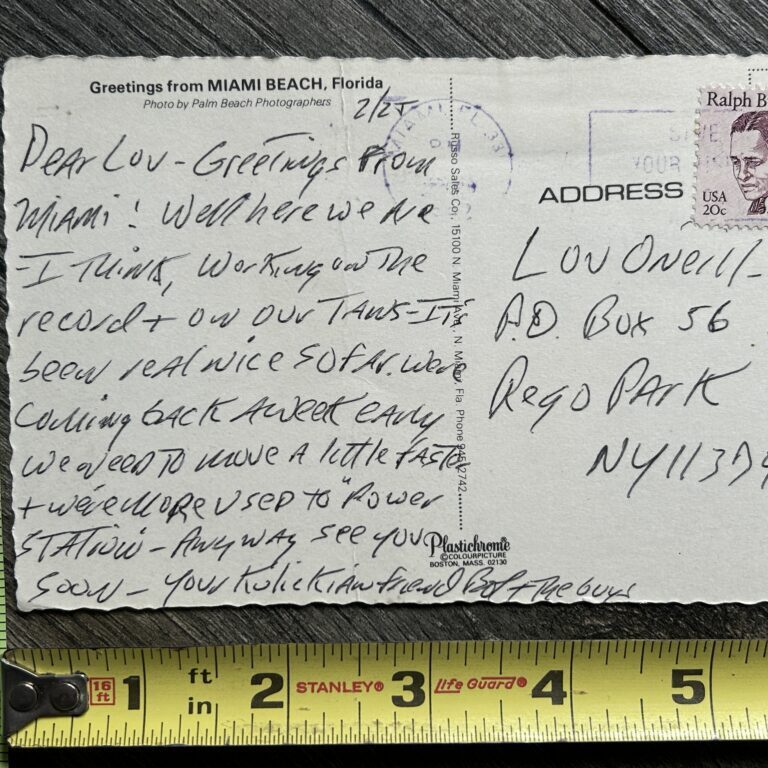 Greetings from MIAMI BEACH, Florida
Photo by Palm Beach Photographers
2/25
Dear Lou - Greetings From
Miami! Well here we are
- I Think, working on the
record + on our Tans - It's
been real nice so far. We're
coming back a week early
we need to move a little faster
+ we're more used to "Power
Station" - Anyway see you
soon - Your Kulickian friend Bob + The guys
Russo Sales Co., 15100 N. Miami Ave., N. Miami, Fla. Phone 945-2742
Plastichrome®
©COLOURPICTURE
BOSTON, MASS. 02130
MIAMI, FL 33
YOUR
ADDRESS
Ralph B
USA
20c
Lou Oneill
P.O. Box 56
Rego Park
NY 1137
16
ft
1
ft
in
2
STANLEY®
3
Life Guard®
4
5